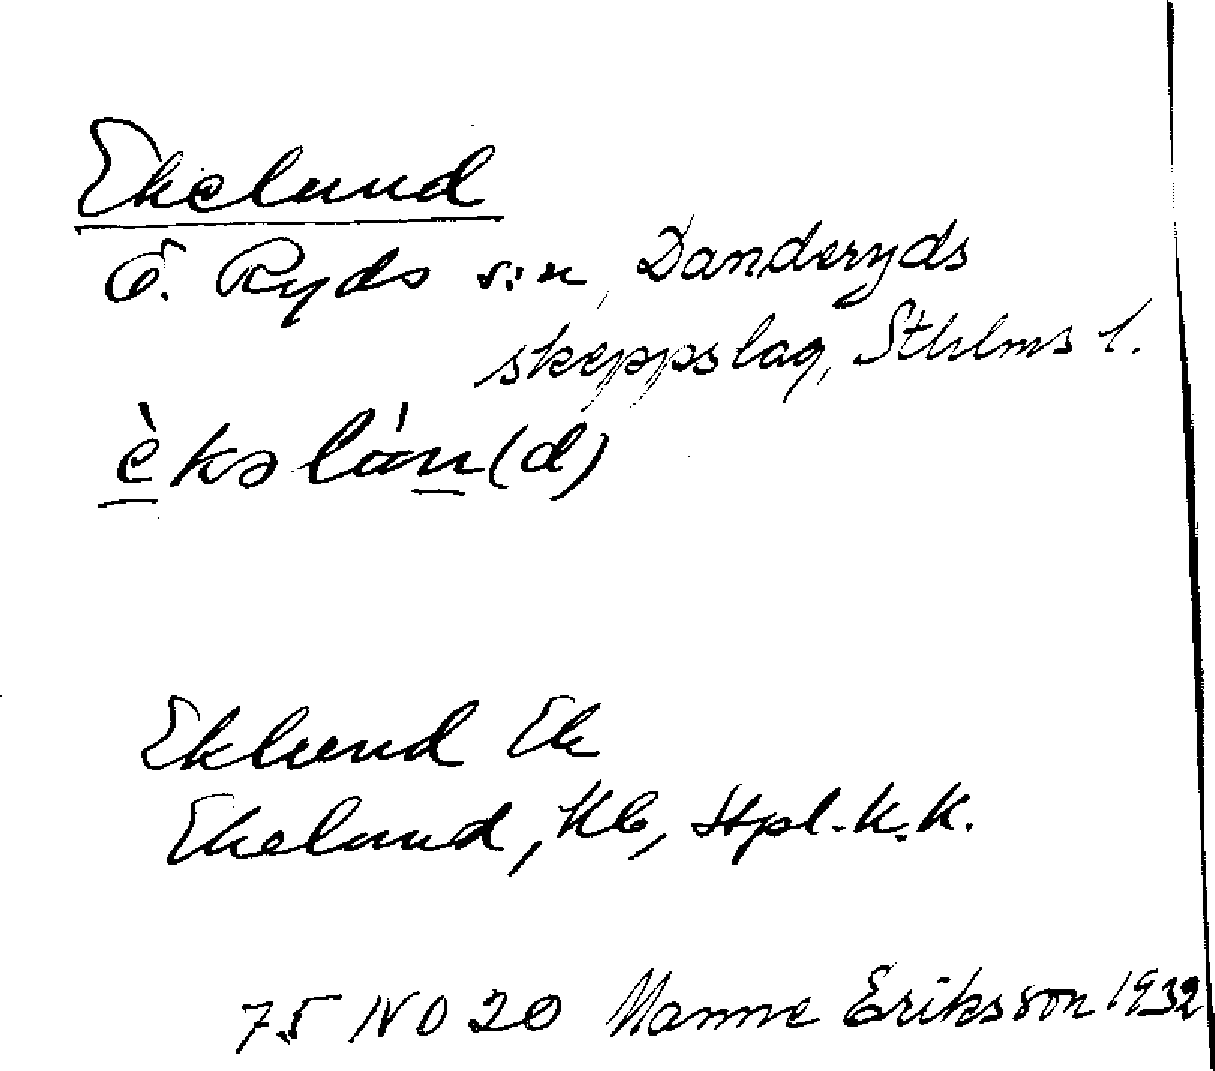 Ekelund
Ö. Ryds s:n, Danderyds
skeppslag, Sthlms l.
è̱kəlánn(d)
Eklund Ek
Ekelund, Kb, Hpl. k.k.
75 NO 20 Manne Eriksson 1932